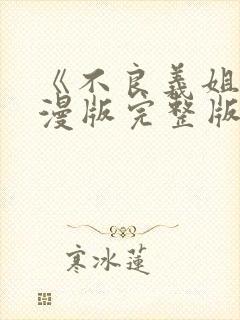 《不良義姐
漫版完整版
寒冰蓮